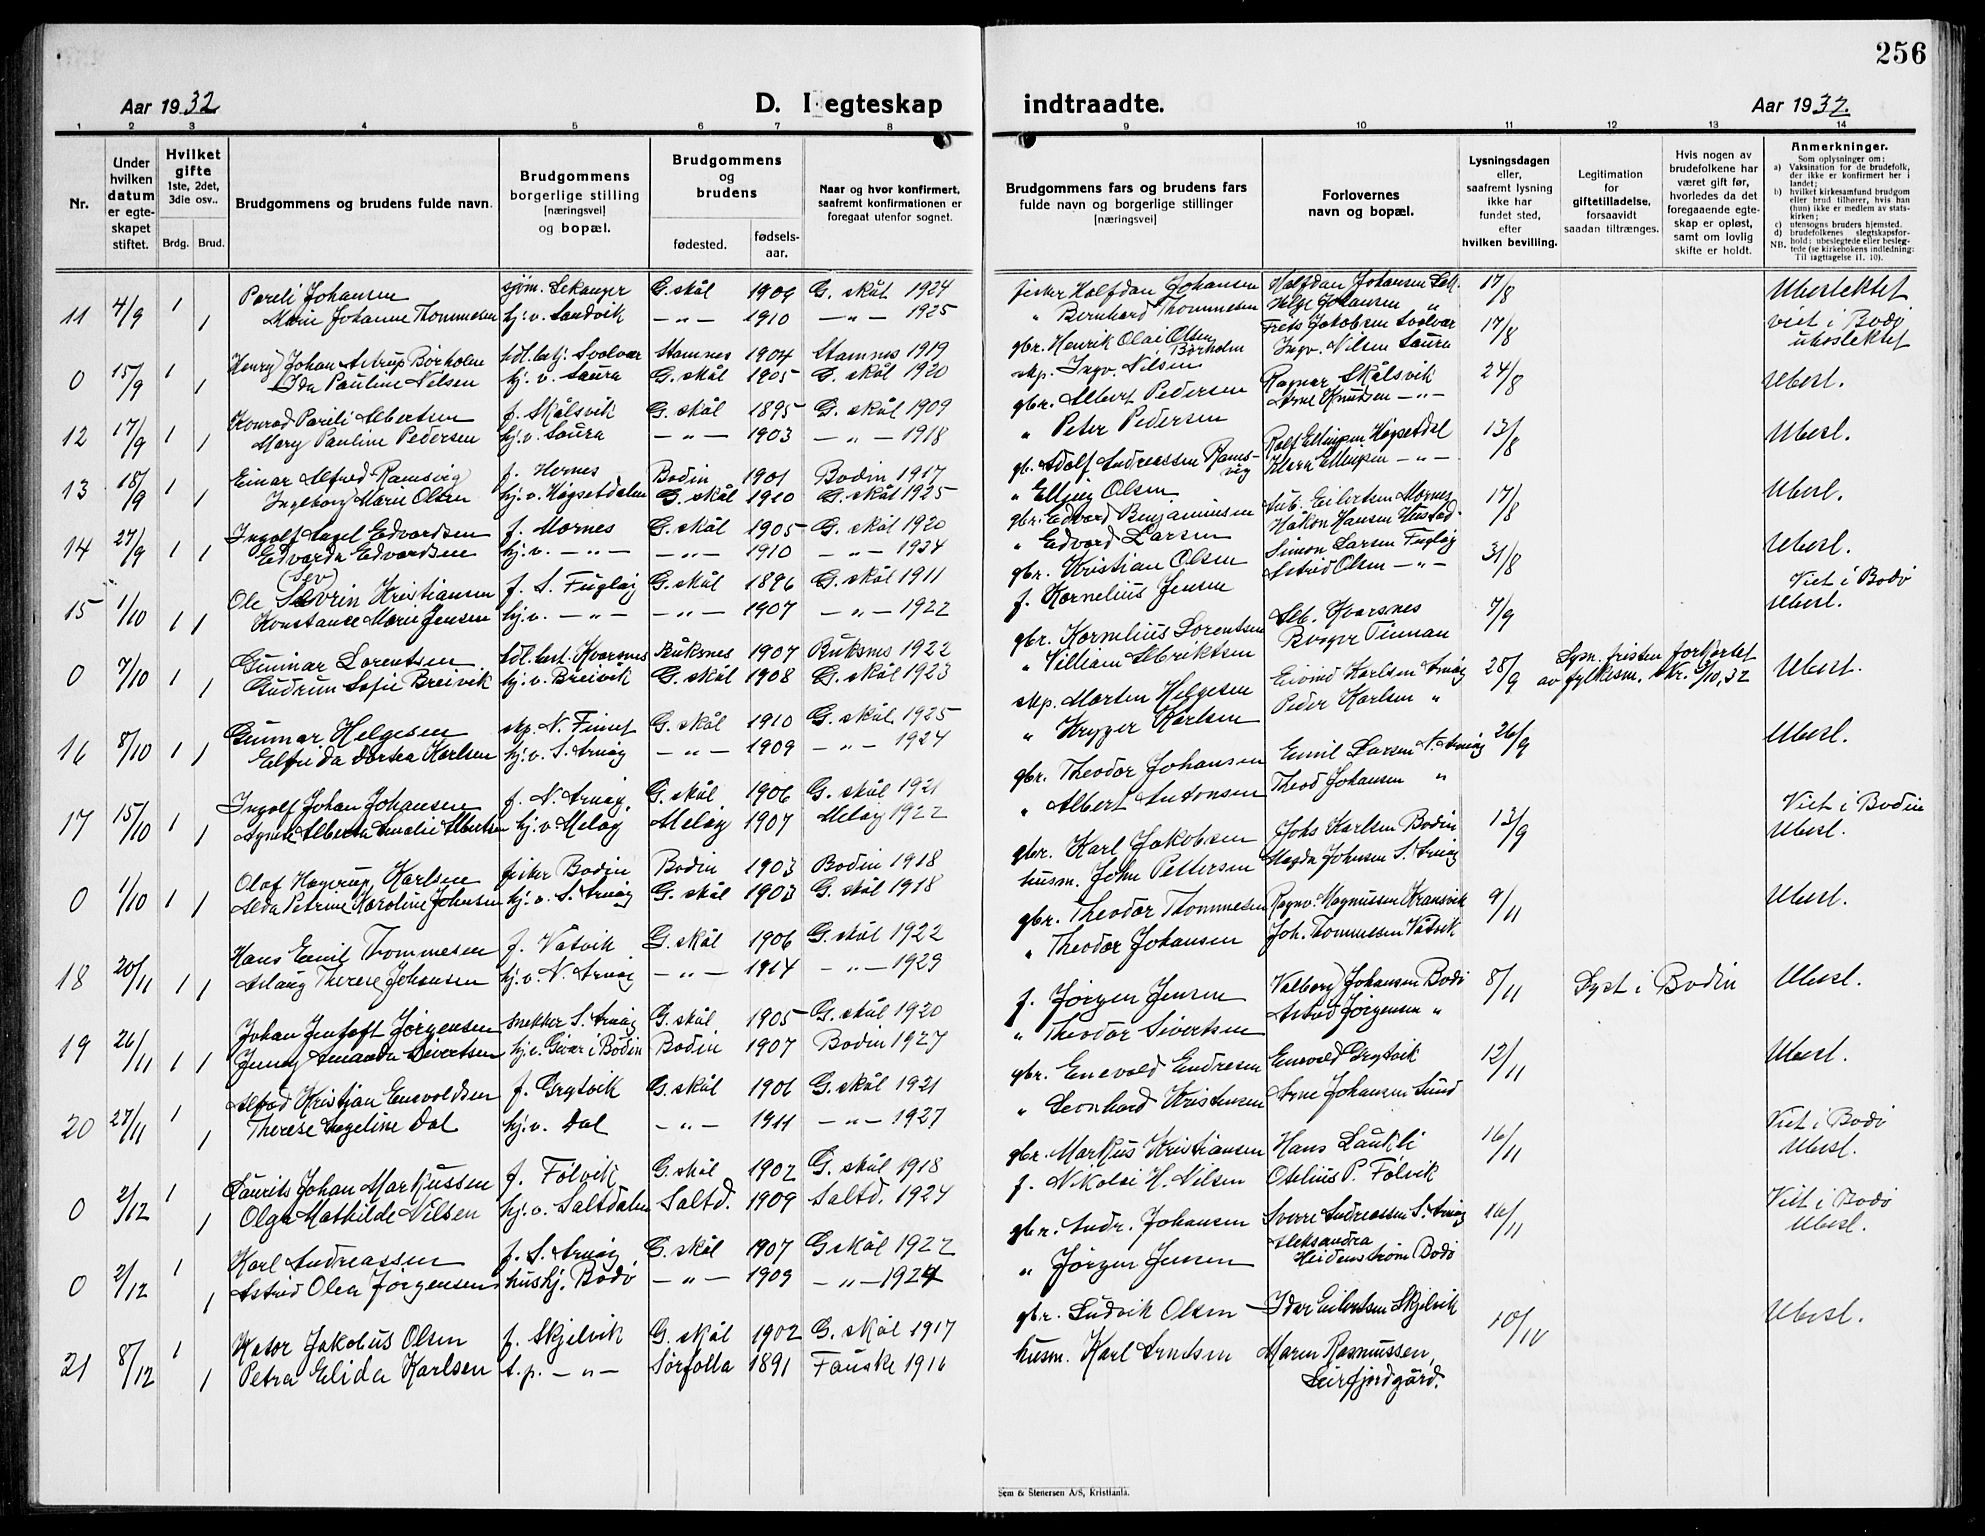 256
Aar 1932
D. I egteskap
indtraadte.
Aar 1932.
1 2 3 4 5 6 7 8 9 10 11 12 13 14
Nr.
Under hvilken datum er egteskapet stiftet.
Hvilket gifte 1ste, 2det, 3die osv..
Brdg. Brud.
Brudgommens og brudens fulde navn.
Brudgommens borgerlige stilling [næringsvei] og bopæl.
Brudgommens og brudens
fødested.
fødsels-aar.
Naar og hvor konfirmert, saafremt konfirmationen er foregaat utenfor sognet.
Brudgommens fars og brudens fars fulde navn og borgerlige stillinger [næringsvei]
Forlovernes navn og bopæl.
Lysningsdagen eller, saafremt lysning ikke har fundet sted, efter hvilken bevilling.
Legitimation for giftetilladelse, forsaavidt saadan tiltrænges.
Hvis nogen av brudefolkene har været gift før, hvorledes da det foregaaende egteskap er opløst, samt om lovlig skifte er holdt.
Anmerkninger.
Som oplysninger om:
a) Vaksination for de brudefolk, der ikke er konfirmert her i landet;
b) hvilket kirkesamfund brudgom eller brud tilhører, hvis han (hun) ikke er medlem av statskirken;
c) utensogns bruders hjemsted.
d) brudefolkenes slegtskapsforhold: ubeslegtede eller beslegtede (se kirkebokens indledning:
NB. Til iagttagelse 11, 10).
11 4/9 1 Pareli Johansen sjøm. Sekanger G. skål 1906 G. skål 1924 fisker Halfdan Johansen Halfdan Johansen Sek. 17/8 Ubeslektet
1 Marie Johanne Thommesen hj. v. Sandvik —"— 1910 —"— 1925 " Bernhard Thommesen Helge Johansen "
0 15/9 1 Henry Johan Astrup Børholm Svolvær Stamnes 1904 Stamnes 1919 gbr. Henrik Olai Olsen Børholm Frets Jakobsen Svolvær 17/8 viet i Bodø ubeslektet
1 Ida Pauline Nilsen hj. v. Saura G. skål 1905 G. skål 1920 skp. Ingv. Nilsen Ingv. Nilsen Saura
12 17/9 1 Konrad Pareli Albertsen f. Skålsvik G. skål 1895 G. skål 1909 gbr. Albert Pedersen Ragnar Skålsvik 24/8 Ubesl.
1 Mary Pauline Pedersen hj. v. Saura —"— 1903 —"— 1918 " Peter Pedersen Arne Knudsen —"—
13 18/9 1 Einar Alfred Ramsvig f. Hernes Bodin 1901 Bodin 1917 gb. Adolf Andreassen Ramsvig Rolf Ellingsen Høgsetdal 13/8 Ubesl.
1 Ingeborg Marie Olsen hj. v. Høgsetdalen G. skål 1910 G. skål 1925 " Elling Olsen Ellingsen —"—
14 27/9 1 Ingolf Angel Edvardsen f. Mornes G. skål 1905 G. skål 1920 gbr. Edvard Benjaminsen Eilertsen Mornes 17/8 Ubesl.
1 Edvarda Edvardsen hj. v. —"— —"— 1910 —"— 1924 " Edvard Larsen Håkon Hansen Hustad
15 1/10 1 Ole Sevrin (Sev) Kristiansen f. S. Fugløy G. skål 1896 G. skål 1911 gbr. Kristian Olsen Simon Larsen Fugløy 31/8 Ubesl.
1 Konstance Marie Jensen hj. v. —"— —"— 1907 —"— 1922 f. Kornelius Jensen Astrid Olsen —"—
0 7/10 1 Gunnar Lorentsen Kvarsnes Buksnes 1907 Buksnes 1922 gbr. Kornelius Lorentsen Alb. Kvarsnes 7/9 Viet i Bodø Ubesl.
1 Gudrun Sofie Breivik hj. v. Breivik G. skål 1908 G. skål 1923 " Villiam Albriktsen Birger Tinnan
16 8/10 1 Gunnar Helgesen skp. N. Finnset G. skål 1910 G. skål 1925 skp. Morten Helgesen Eivind Karlsen Arnøy 28/9 Lysn. fristen forkortet av fylkesm. skr. 5/10, 32 Ubesl.
1 Elfrida Dortea Karlsen hj. v. S. Arnøy —"— 1909 —"— 1924 " Kryger Karlsen Peder Karlsen "
17 15/10 1 Ingolf Johan Johansen f. N. Arnøy. G. skål 1906 G. skål 1921 gbr. Theodor Johansen Emil Larsen N. Arnøy 26/9 Ubesl.
1 Agnete Alberta Amalie Albertsen hj. v. Meløy Meløy 1907 Meløy 1922 " Albert Antonsen Theod Johansen "
0 1/10 1 Olaf Hagerup Karlsen fisker Bodin Bodin 1903 Bodin 1918 gbr. Karl Jakobsen Johs Karlsen Bodin 13/9 Viet i Bodin Ubesl.
1 Alda Petrine Karoline Johnsen hj. v. S. Arnøy G. skål 1903 G. skål 1918 husm. John Pettersen Magda Johnsen S. Arnøy
18 20/11 1 Hans Emil Thommesen f. Våtvik G. skål 1906 G. skål 1922 gbr. Theodor Thommesen Ragnv. Magnussen Kransvik 9/11 Ubesl.
1 Aslaug Therese Johansen hj. v. N. Arnøy —"— 1914 —"— 1929 " Theodor Johansen Joh. Thommesen Våtvik
19 26/11 1 Johan Jentoft Jørgensen snekker S. Arnøy G. skål 1905 G. skål 1920 f. Jørgen Jensen Valborg Johansen Bodø 8/11 Lyst i Bodin Ubesl.
1 Jenny Amanda Sivertsen hj. v. Givær i Bodin Bodin 1907 Bodin 1927 " Theodor Sivertsen Astrid Jørgensen "
20 27/11 1 Alfred Kristian Enevoldsen f. Grytvik G. skål 1906 G. skål 1921 gbr. Enevold Endresen Enevold Grytvik 12/11 Ubesl.
1 Therese Angeline Dal hj. v. Dal —"— 1911 —"— 1927 " Leonhard Kristensen Arne Johansen Sund
0 2/12 1 Laurits Johan Markussen f. Følvik G. skål 1902 G. skål 1918 gbr. Markus Kristiansen Hans Laukli 16/11 Viet i Bodø Ubesl.
1 Olga Mathilde Nilsen hj. v. Saltdalen Saltd. 1909 Saltd. 1924 f. Nikolai H. Nilsen Otelius P. Følvik
0 2/12 1 Karl Andreassen f. S. Arnøy G. skål 1907 G skål 1922 gbr. Andr. Johansen Sverre Andreassen S. Arnøy 16/11 Viet i Bodø Ubesl.
1 Astrid Olea Jørgensen hushj. Bodø —"— 1909 —"— 1924 " Jørgen Jensen Aleksandra Heidenstrøm Bodø
21 8/12 1 Kator Jakobus Olsen f. Skjelvik G. skål 1902 G. skål 1917 gbr. Ludvik Olsen Idar Eilertsen Skjelvik 10/11 Ubesl.
1 Petra Elida Karlsen t. p. —"— Sørfolla 1891 Fauske 1916 husm. Karl Arntsen Maren Rasmussen, Leirfjordgård.
Sem & Stenersen A/S, Kristiania.